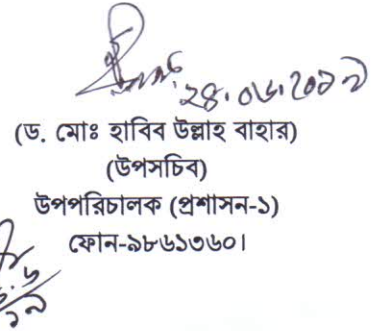 ২৪.০৬.২০১৯
(ড. মোঃ হাবিব উল্লাহ বাহার)
(উপসচিব)
উপপরিচালক (প্রশাসন-১)
ফোন-৯৮৬১৩৬০।